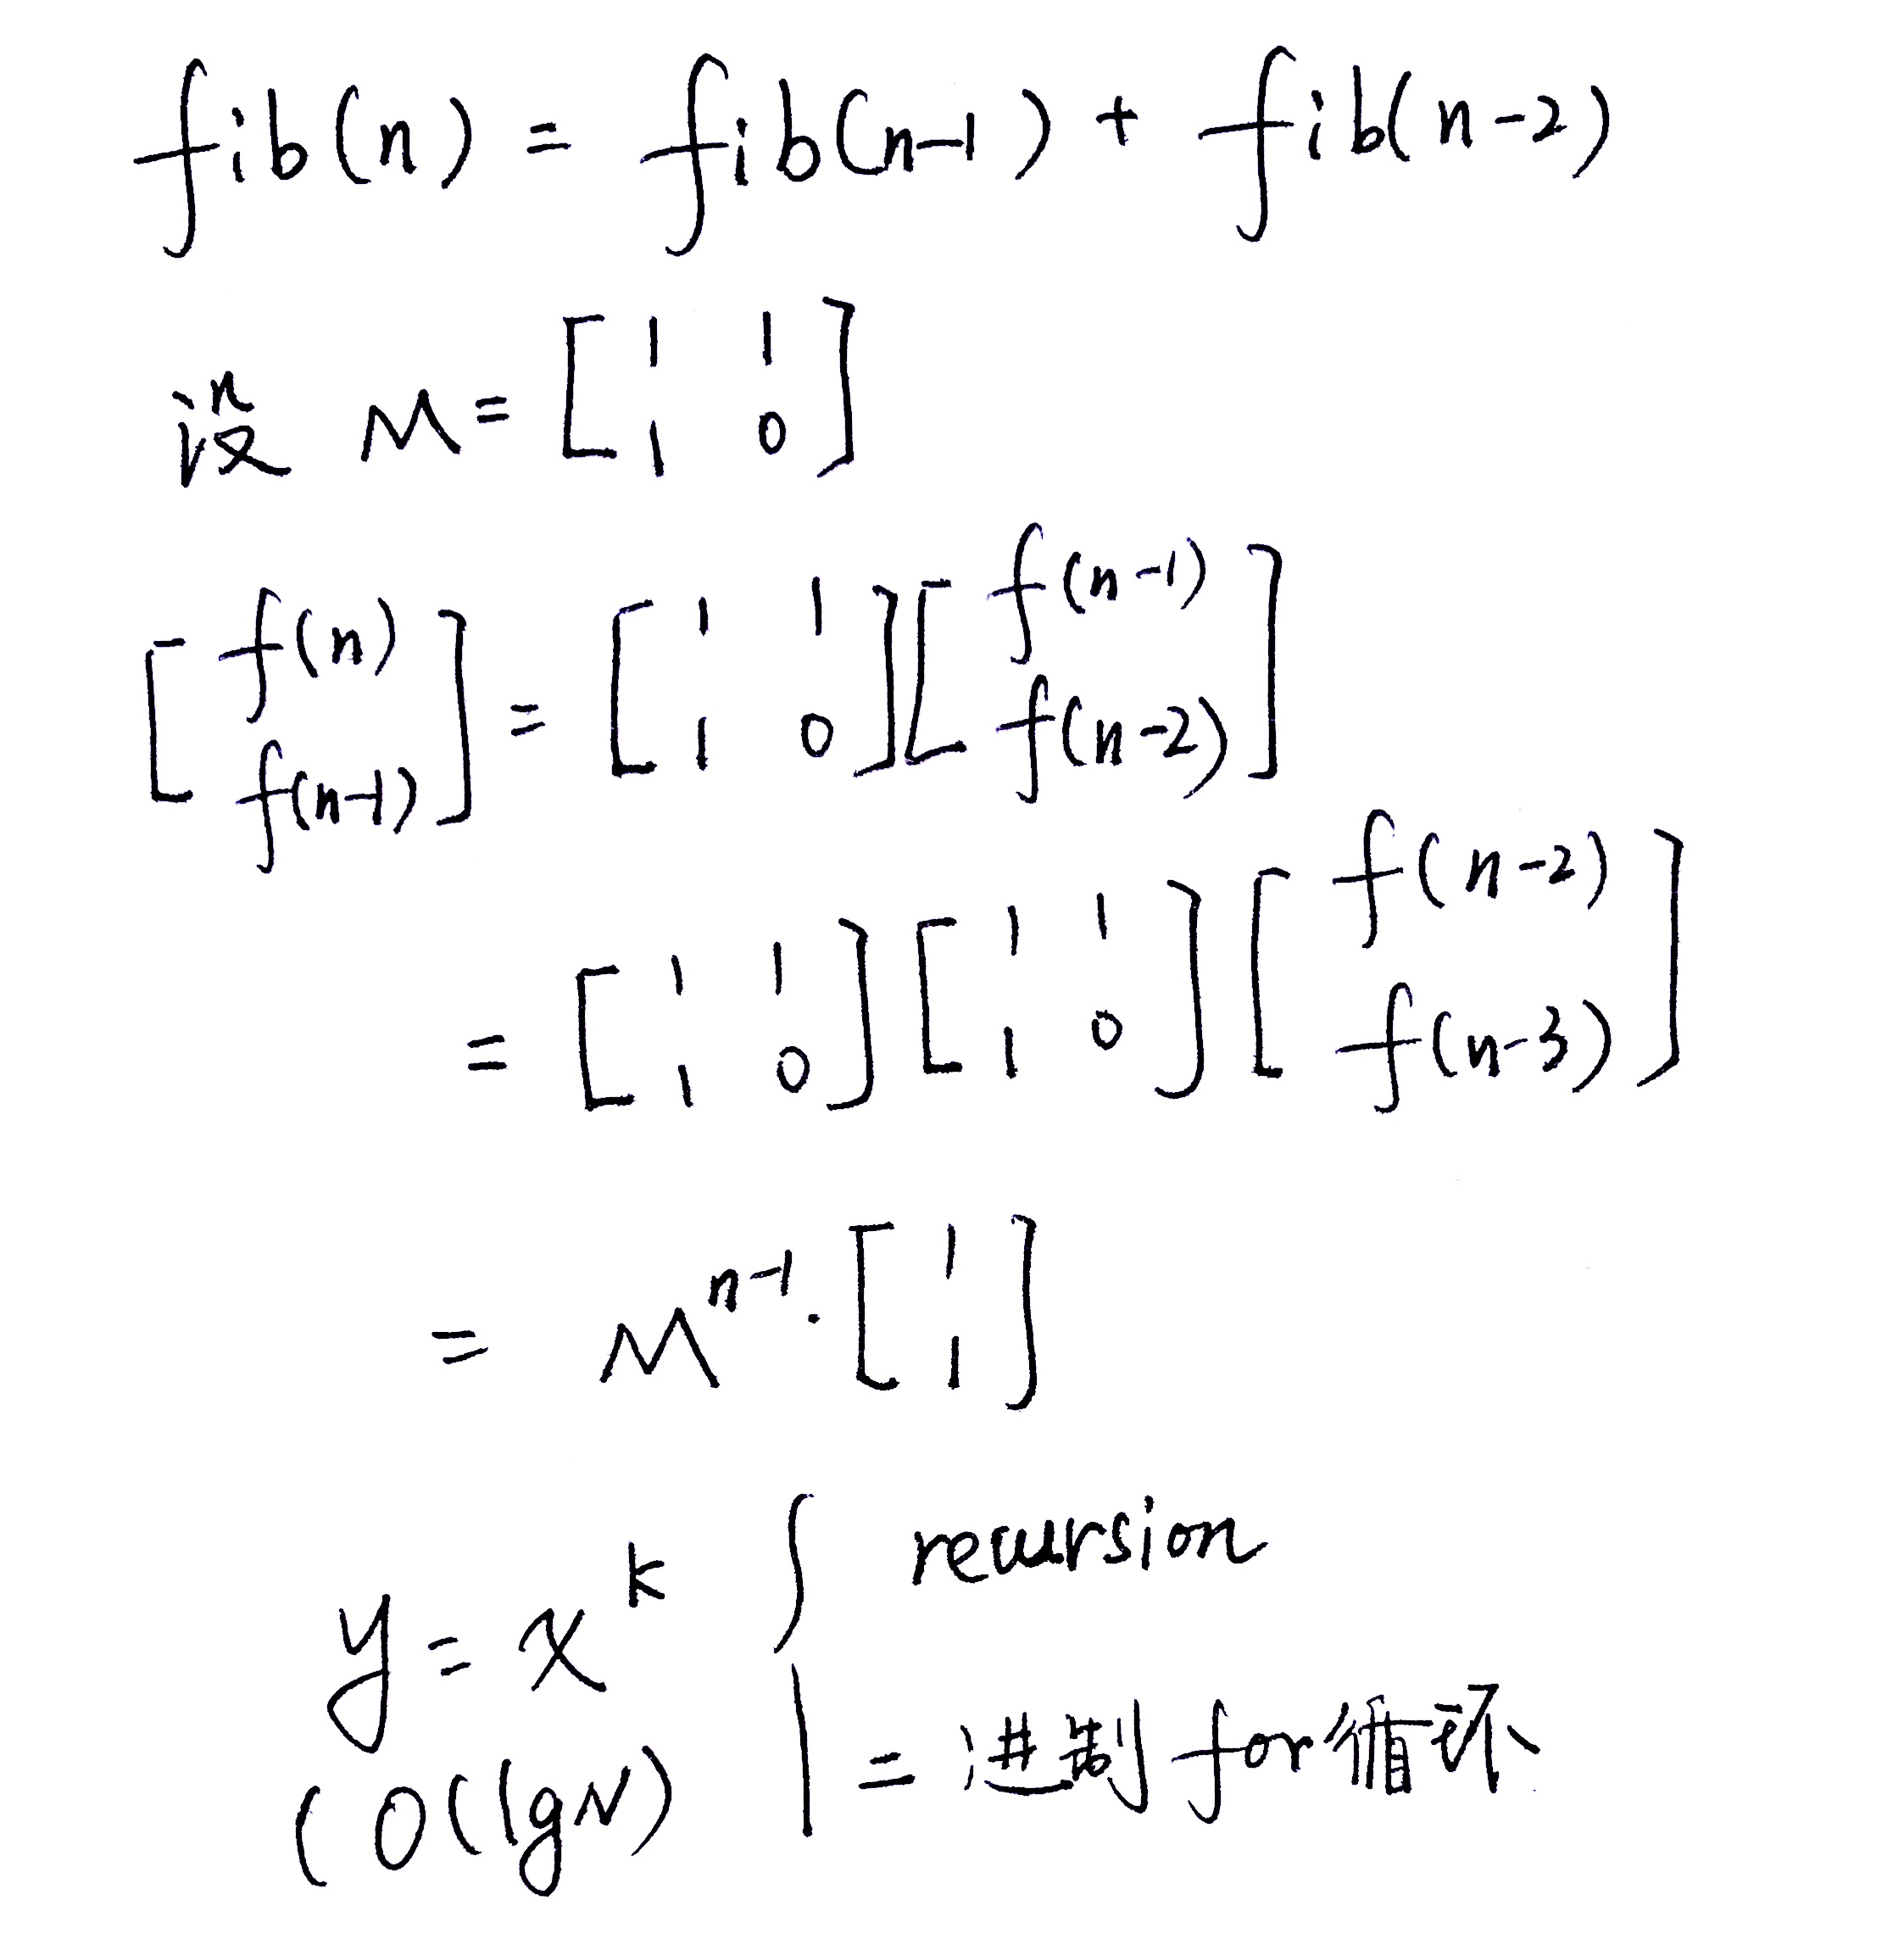 fib(n) = fib(n-1) + fib(n-2)
设 M = [ 1 1 ; 1 0 ]
[ f(n) ; f(n-1) ] = [ 1 1 ; 1 0 ] [ f(n-1) ; f(n-2) ]
= [ 1 1 ; 1 0 ] [ 1 1 ; 1 0 ] [ f(n-2) ; f(n-3) ]
= M^{n-1} · [ 1 ; 1 ]
y = x^k { recursion
(O(lgN) 二进制 for循环